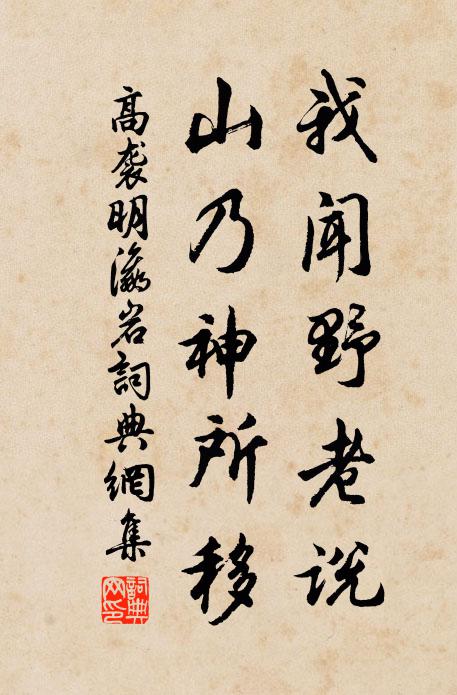 我闻野老说
山乃神所移
高袭明瀛岩詞典網集
詞典网印